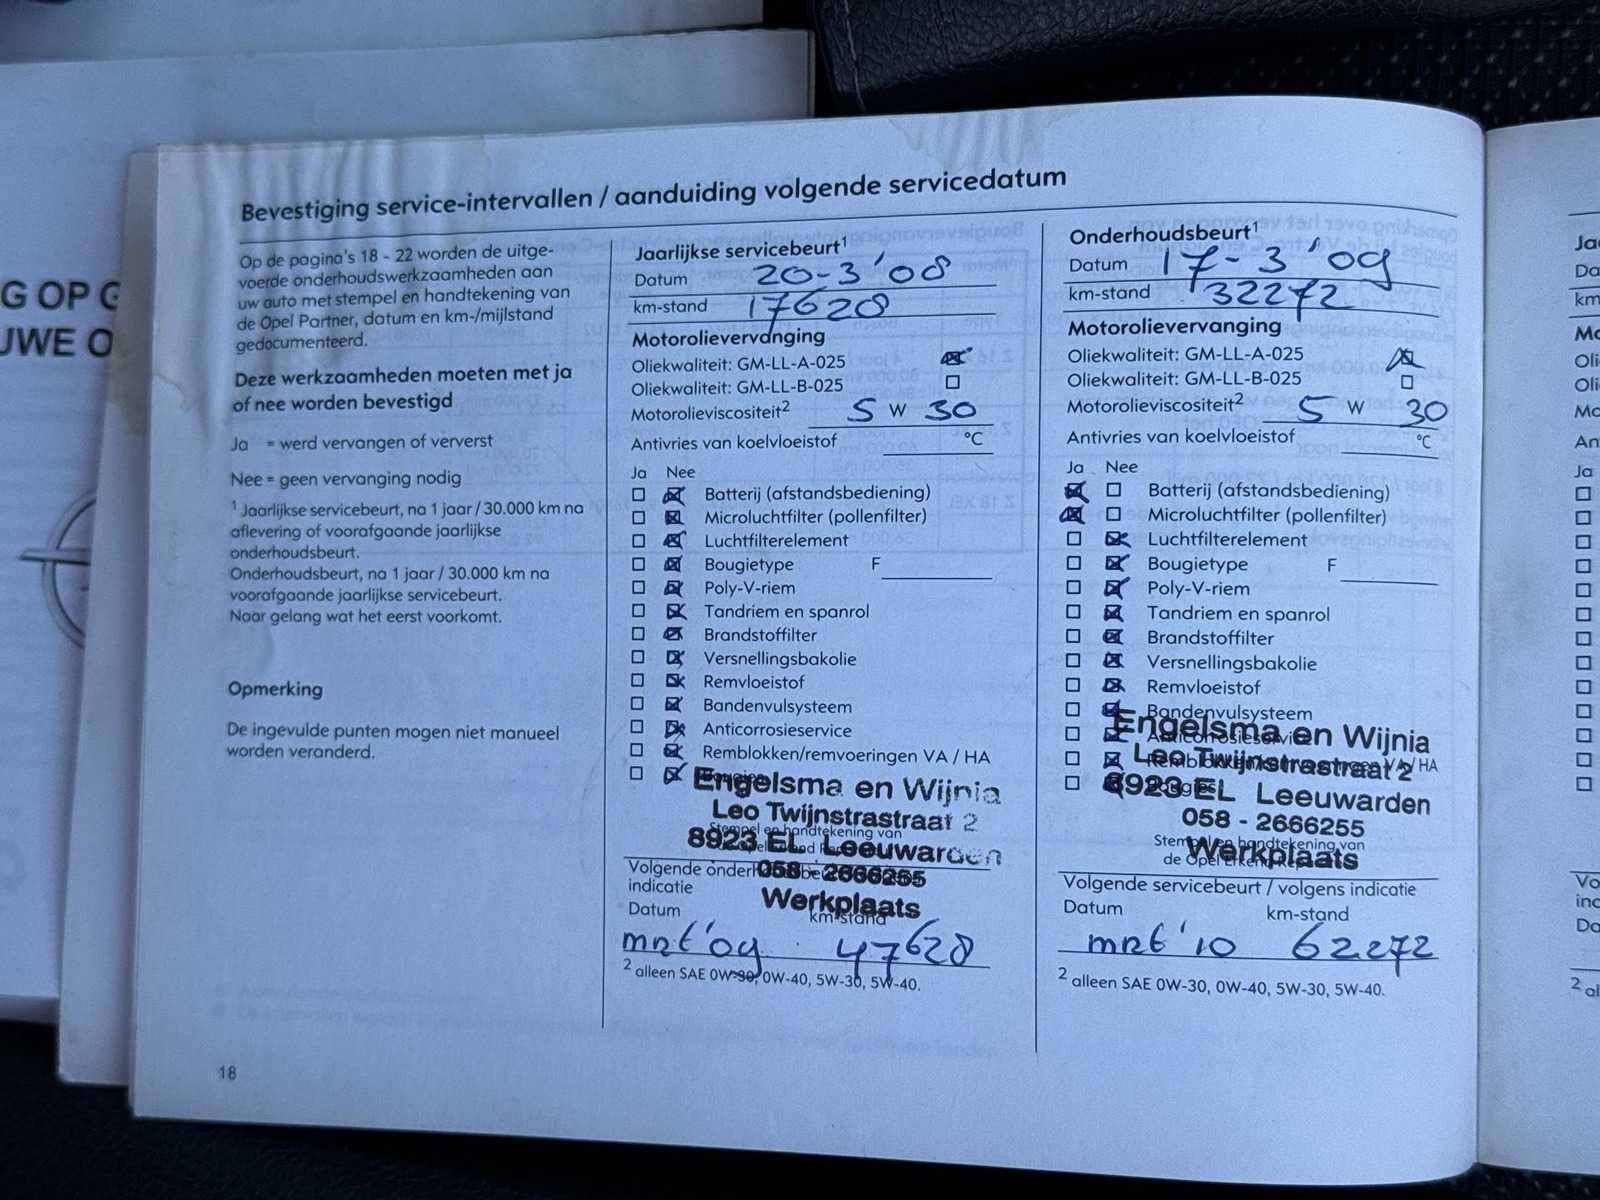 G OP G
UWE O
Bevestiging service-intervallen / aanduiding volgende servicedatum
Op de pagina's 18 - 22 worden de uitge-
voerde onderhoudswerkzaamheden aan
uw auto met stempel en handtekening van
de Opel Partner, datum en km-/mijlstand
gedocumenteerd.
Deze werkzaamheden moeten met ja
of nee worden bevestigd
Ja = werd vervangen of ververst
Nee = geen vervanging nodig
1 Jaarlijkse servicebeurt, na 1 jaar / 30.000 km na
aflevering of voorafgaande jaarlijkse
onderhoudsbeurt.
Onderhoudsbeurt, na 1 jaar / 30.000 km na
voorafgaande jaarlijkse servicebeurt.
Naar gelang wat het eerst voorkomt.
Opmerking
De ingevulde punten mogen niet manueel
worden veranderd.
18
Jaarlijkse servicebeurt1
Datum 20-3'08
km-stand 17628
Motorolievervanging
Oliekwaliteit: GM-LL-A-025
Oliekwaliteit: GM-LL-B-025
Motorolieviscositeit2 5 W 30
Antivries van koelvloeistof °C
Ja Nee
Batterij (afstandsbediening)
Microluchtfilter (pollenfilter)
Luchtfilterelement
Bougietype F
Poly-V-riem
Tandriem en spanrol
Brandstoffilter
Versnellingsbakolie
Remvloeistof
Bandenvulsysteem
Anticorrosieservice
Remblokken/remvoeringen VA / HA
Engelsma en Wijnia
Leo Twijnstrastraat 2
Stempel en handtekening van
8923 EL Leeuwarden
058 - 2666255
Werkplaats
indicatie
Datum km-stand
mrt'09 47628
2 alleen SAE 0W-30, 0W-40, 5W-30, 5W-40.
Onderhoudsbeurt1
Datum 17-3'09
km-stand 32272
Motorolievervanging
Oliekwaliteit: GM-LL-A-025
Oliekwaliteit: GM-LL-B-025
Motorolieviscositeit2 5 W 30
Antivries van koelvloeistof °C
Ja Nee
Batterij (afstandsbediening)
Microluchtfilter (pollenfilter)
Luchtfilterelement
Bougietype F
Poly-V-riem
Tandriem en spanrol
Brandstoffilter
Versnellingsbakolie
Remvloeistof
Bandenvulsysteem
Engelsma en Wijnia
Leo Twijnstrastraat 2
8923 EL Leeuwarden
058 - 2666255
Stempel en handtekening van
Werkplaats
Volgende servicebeurt / volgens indicatie
Datum km-stand
mrt'10 62272
2 alleen SAE 0W-30, 0W-40, 5W-30, 5W-40.